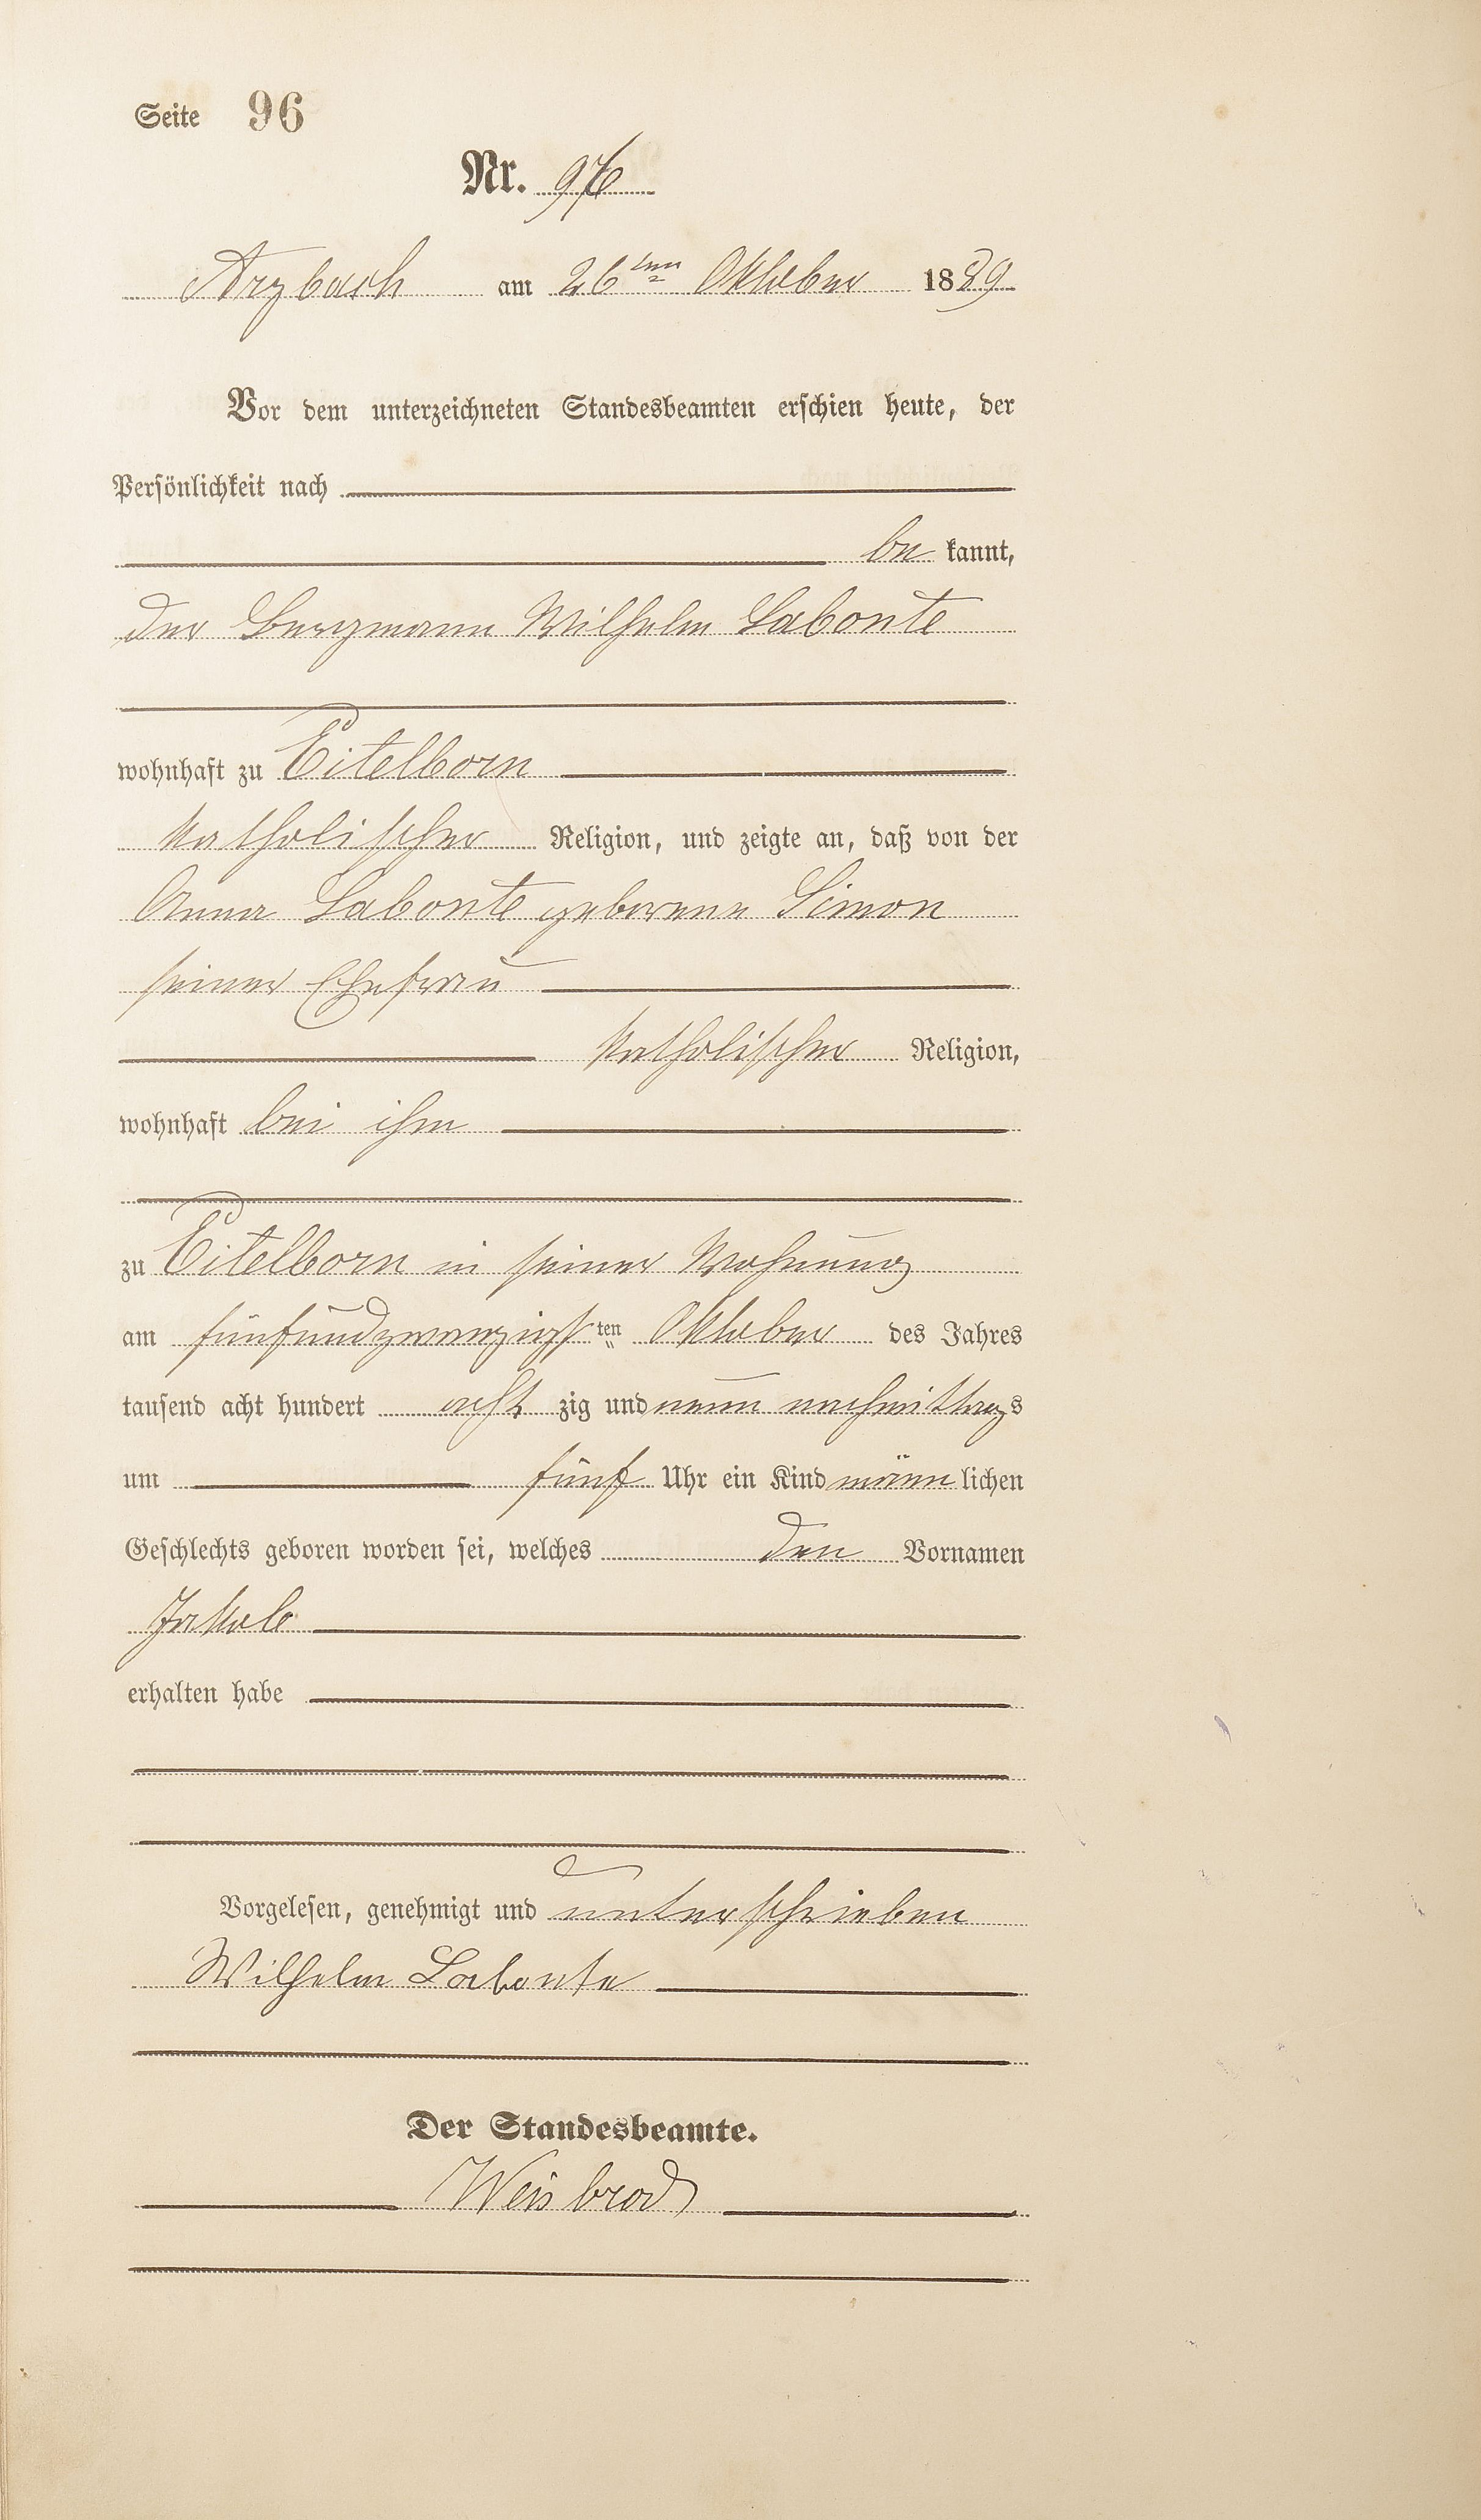 Seite 96
Nr. 96
Arzbach am 26ten Oktober 1889
Vor dem unterzeichneten Standesbeamten erschien heute, der
Persönlichkeit nach
be kannt,
der Bergmann Wilhelm Labonte
wohnhaft zu Eitelborn
katholischer Religion, und zeigte an, daß von der
Anna Labonte geborene Simon
seiner Ehefrau
katholischer Religion,
wohnhaft bei ihm
zu Eitelborn in seiner Wohnung
am fünfundzwanzigsten Oktober des Jahres
tausend acht hundert acht zig und neun nachmittags
um fünf Uhr ein Kind männ lichen
Geschlechts geboren worden sei, welches den Vornamen
Jakob
erhalten habe
Vorgelesen, genehmigt und unterschrieben
Wilhelm Labonte
Der Standesbeamte.
Weisbrod